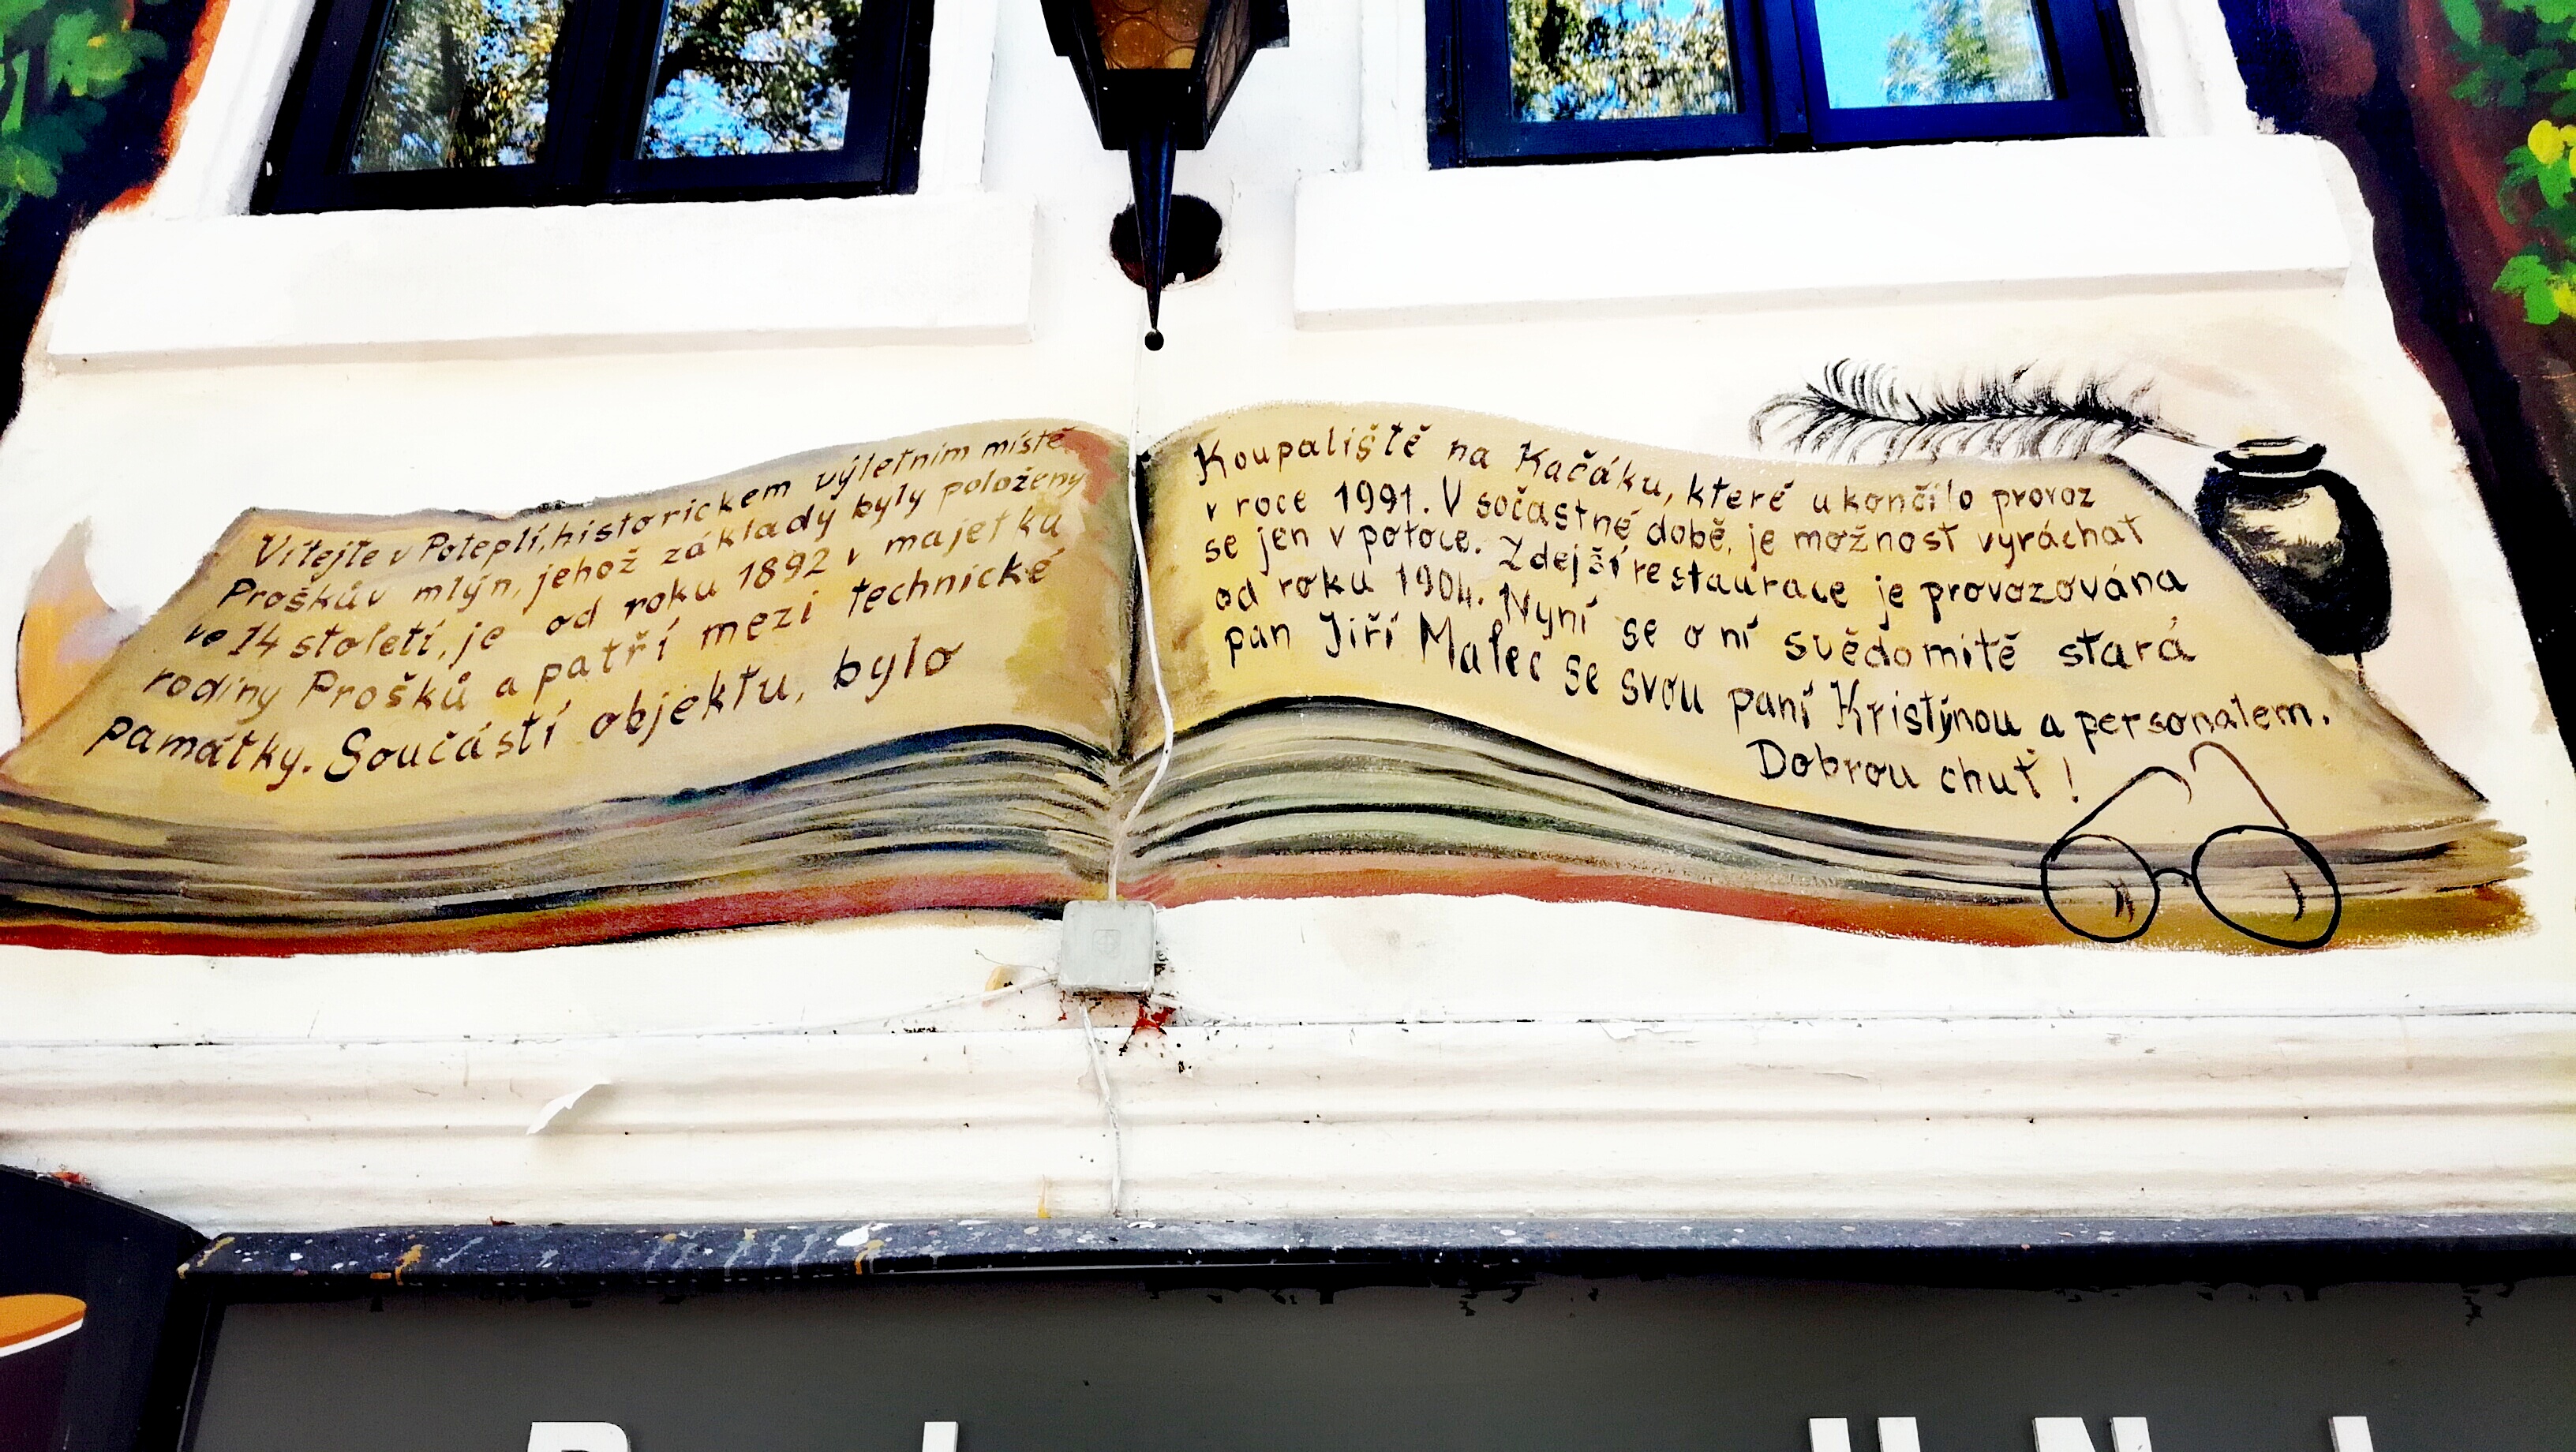 Vítejte v Poteplí, historickem výletním místě
Proškův mlýn, jehož základy byly položeny
ve 14 století, je od roku 1892 v majetku
rodiny Prošků a patří mezi technické
památky. Součástí objektu, bylo
Koupaliště na Kačáku, které ukončilo provoz
v roce 1991. V sočastné době, je možnost vyráchat
se jen v potoce. Zdejší restaurace je provozována
od roku 1904. Nyní se o ní svědomitě stará
pan Jiří Malec se svou paní Kristýnou a personalem.
Dobrou chuť!